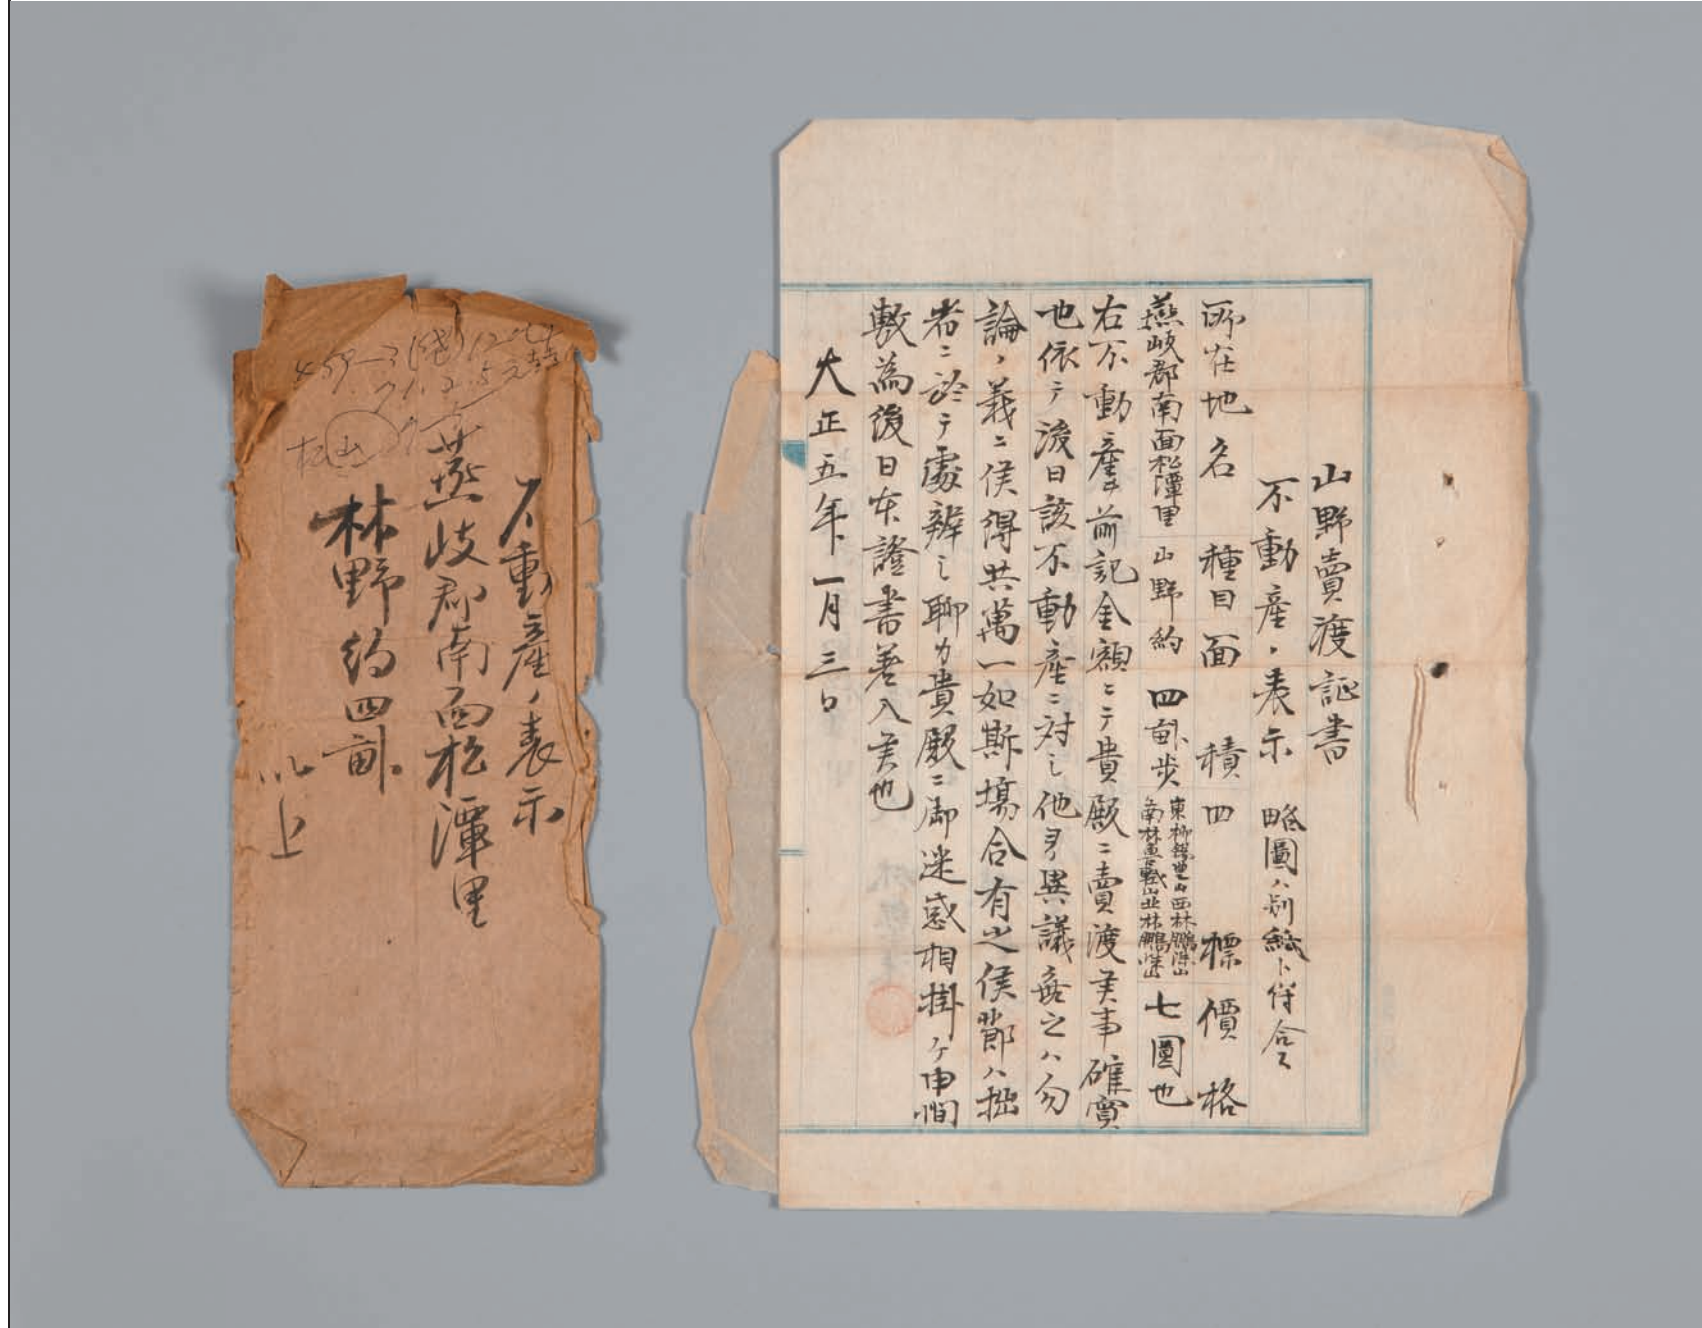 山野賣渡証書
不動産ノ表示 略圖ハ別紙ト符合ス
所在地名 種目 面積 四標 價格
燕岐郡南面松潭里 山野約 四畝歩 七圓也
東柳 山西林鵬洙山
南林 山北林鵬洙山
右不動産ヲ前記金額ニテ貴殿ニ賣渡候事確實
也依テ後日該不動産ニ対シ他ヨリ異議無之ハ勿
論ノ義ニ候得共萬一如斯塲合有之候節ハ拙
者ニ於テ處辨シ聊カ貴殿ニ御迷惑相掛ケ申間
敷為後日本證書差入候也
大正五年一月三日
不動産ノ表示
燕岐郡南面松潭里
林野約四畝
以上
459-3